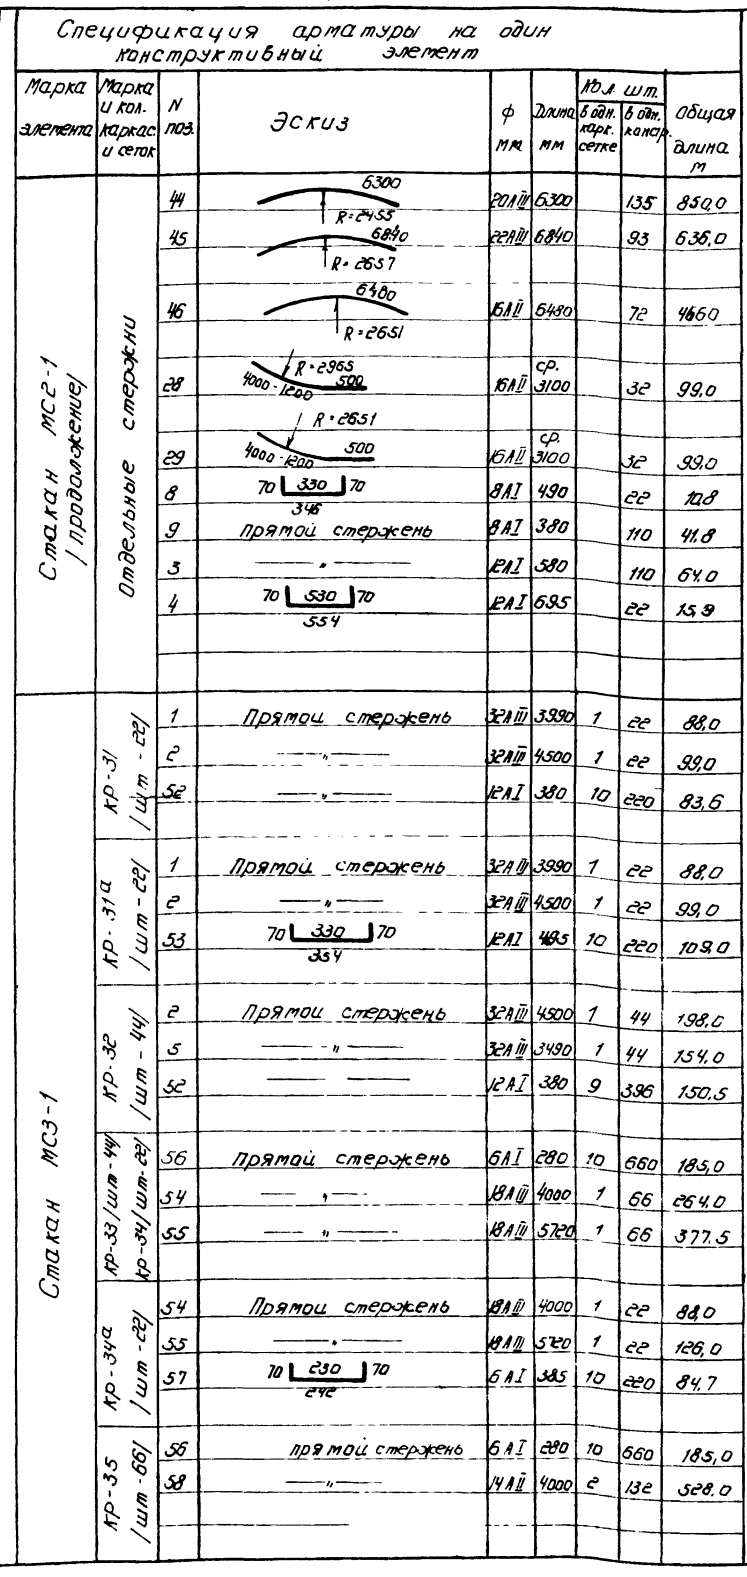 Спецификация арматуры на один
конструктивный элемент
Марка элемента | Марка и кол. каркас и сеток | N поз. | Эскиз | ф мм | Длина мм | Кол. шт. в одн. карк. сетке | в одн. | Общая длина м
Стакан МС2-1 /продолжение/
Отдельные стержни
44 6300 R=2455 20АIII 6300 135 850,0
45 6840 R=2657 22АIII 6840 93 636,0
46 6480 R=2651 16АII 6480 72 4660
28 R=2965 4000-1200 500 16АII ср. 3100 32 99,0
29 R=2651 4000-1200 500 16АII ср. 3100 32 99,0
8 70 330 70 346 8АI 490 22 10,8
9 Прямой стержень 8АI 380 110 41.8
3 —„— 12АI 580 110 64.0
4 70 530 70 554 12АI 695 22 15,9
Стакан МС3-1
КР-31 /шт-22/
1 Прямой стержень 32АIII 3990 1 22 88,0
2 —„— 32АIII 4500 1 22 99,0
52 —„— 12АI 380 10 220 83,6
КР-31а /шт-22/
1 Прямой стержень 32АIII 3990 1 22 88,0
2 —„— 32АIII 4500 1 22 99,0
53 70 330 70 354 12АI 495 10 220 109.0
КР-32 /шт-44/
2 Прямой стержень 32АIII 4500 1 44 198,0
5 —„— 32АIII 3490 1 44 154,0
52 — — 12АI 380 9 396 150,5
КР-33/шт-44/
КР-34/шт-22/
56 Прямой стержень 6АI 280 10 660 185,0
54 —„— 18АIII 4000 1 66 264.0
55 —„— 18АIII 5720 1 66 377.5
КР-34а /шт-22/
54 Прямой стержень 18АIII 4000 1 22 88,0
55 —„— 18АIII 5720 1 22 126,0
57 70 230 70 242 6АI 385 10 220 84.7
КР-35 /шт-66/
56 прямой стержень 6АI 280 10 660 185,0
58 —„— 14АII 4000 2 132 528.0